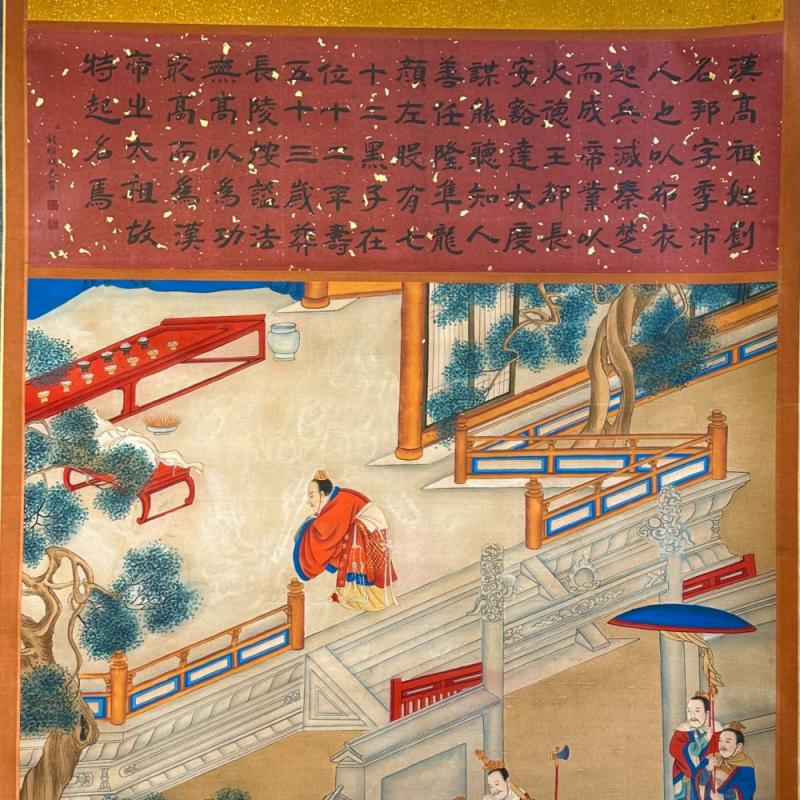 漢高祖姓劉
名邦字季沛
人也以布衣
起兵滅秦楚
而成帝業以
火德王都長
安豁達大度
謀能聽知人
善任隆準龍
顏左股有七
十二黑子在
位十二年壽
五十三歲葬
長陵按諡法
無高以為功
最高而為漢
帝之太祖故
特起名焉